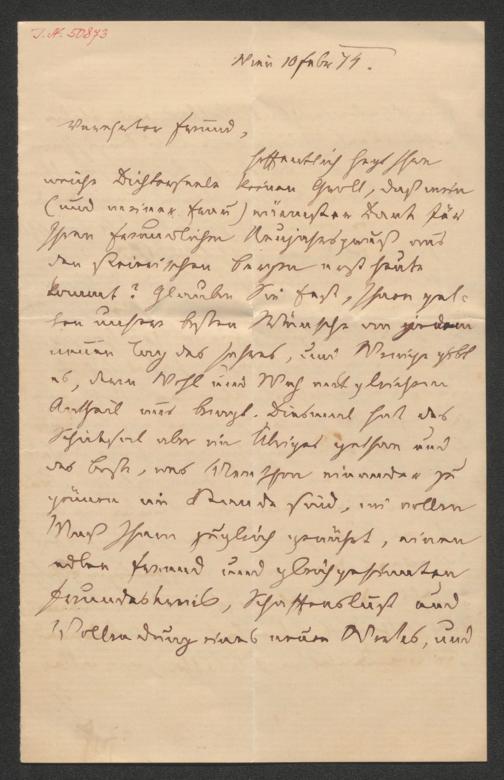 I. N. 50873
Wien 10 Febr 75.
Verehrter Freund,
hoffentlich hegt Ihre
weiche Dichterseele keinen Groll, daß mein
(und meiner Frau) wärmster Dank für
Ihren freundlichen Neujahrsgruß aus
den steirischen Bergen erst heute
kommt? Glauben Sie fest, Ihnen gel-
ten unsere besten Wünsche an jedem
neuen Tag des Jahres, und Wenige gibt
es, deren Wohl und Weh mit gleichem
Antheil uns bewegt. Diesmal hat das
Schicksal aber ein Übriges gethan und
das beste, was Menschen einander zu
gönnen im Stande sind, in vollem
Maß Ihnen zugleich gewährt, einen
edlen Freund und gleichgesinnten
Freundeskreis, Schaffenslust und
Vollendung eines neuen Werkes, und